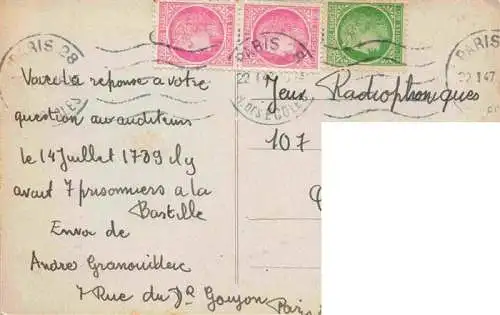 PARIS 28
PARIS
PARIS
22 1 47
R. DES ECOLES
22 1 47
Voici la réponse a votre
question aux auditeurs
le 14 Juillet 1789 il y
avait 7 prisonniers a la
Bastille
Envoi de
André
7 Rue du Dr Goujon Paris
Jeux Radiophoniques
107